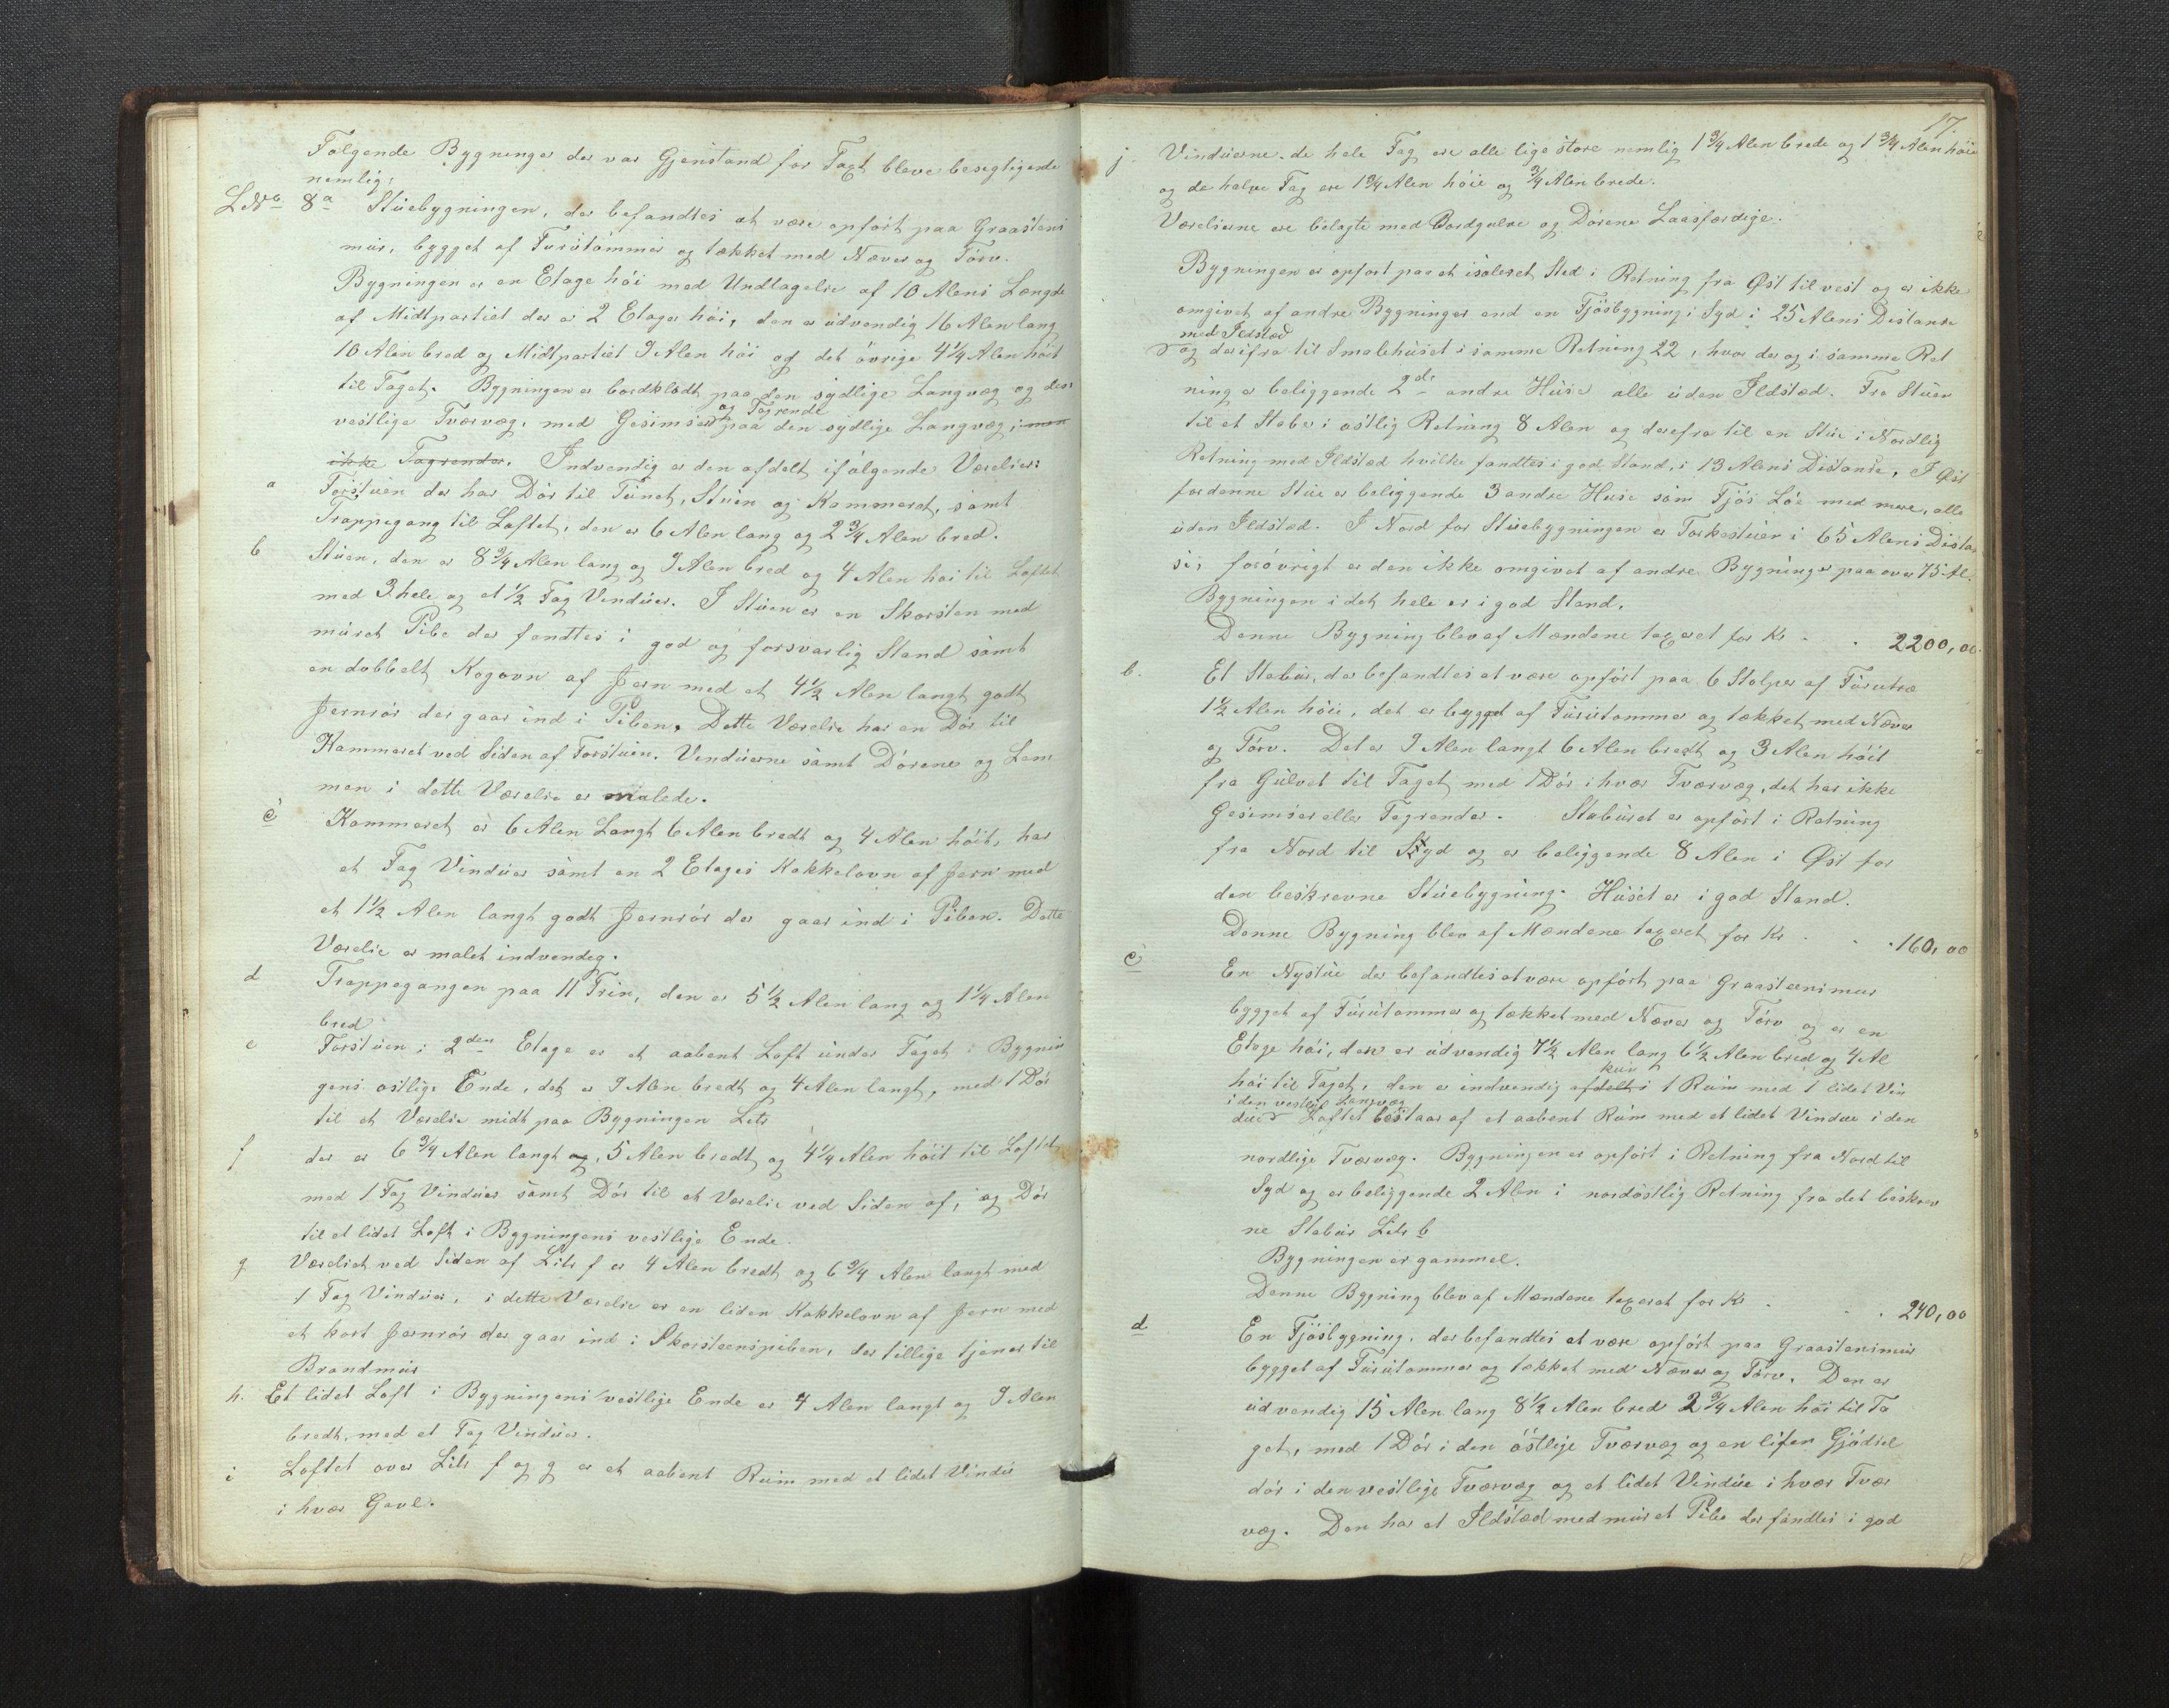 Følgende Bygninger der var Gjenstand for Taxt bleve besegtigende
nemlig:
L.No 8a Stuebygningen, der befandtes at være opført paa Graastens
mur, bygget af Furutømmer og tækket med Næver og Tørv.
Bygningen er en Etage høi med Undtagelse af 10 Alens Længde
af Midtpartiet der er 2 Etager høi, den er udvendig 16 Alen lang
10 Alen bred og Midtpartiet 9 Alen høi og det øvrige 4 1/4 Alen høit
til Taget. Bygningen er bordklædt paa den sydlige Langvæg og den
og Tagrende
vestlige Tværvæg, med Gesimser paa den sydlige Langvæg, men
ikke Tagrender. Indvendig er den afdelt i følgende Værelser:
a Forstuen der har Dør til Tunet, Stuen og Kammeret, samt
Trappegang til Loftet, den er 6 Alen lang og 2 3/4 Alen bred.
b Stuen, den er 8 3/4 Alen lang og 9 Alen bred og 4 Alen høi til Loftet
med 3 hele og et 1/2 Fag Vinduer. I Stuen er en Skorsten med
muret Pibe der fandtes i god og forsvarlig Stand samt
en dobbelt Kogovn af Jern med et 4 1/2 Alen langt godt
Jernrør der gaar ind i Piben. Dette Værelse har en Dør til
Kammeret ved Siden af Forstuen. Vinduerne samt Dørene og Lem
men i dette Værelse er malede.
c Kammeret er 6 Alen Langt 6 Alen bredt og 4 Alen høit, har
et Fag Vinduer samt en 2 Etages Kakkelovn af Jern med
et 1 1/2 Alen langt godt Jernrør der gaar ind i Piben. Dette
Værelse er malet indvendeg.
d Trappegangen paa 11 Trin, den er 5 1/2 Alen lang og 1 1/4 Alen
bred
e Forstuen i 2den Etage er et aabent Loft under Taget i Bygnin
gens østlige Ende, det er 9 Alen bredt og 4 Alen langt, med 1 Dør
til et Værelse midt paa Bygningen Litr
f der er 6 3/4 Alen langt og, 5 Alen bredt og 4 1/4 Alen høit til Loftet
med 1 Fag Vinduer samt Dør til et Værelse ved Siden af, og Dør
til et lidet Loft i Bygningens vestlige Ende.
g Værelset ved Siden af Litr f er 4 Alen bredt og 6 3/4 Alen langt med
1 Fag Vinduer, i dette Værelse er en liden Kakkelovn af Jern med
et kort Jernrør der gaar ind i Skorstenspiben, der tillige tjener til
Brandmur
h. Et lidet Loft i Bygningens vestlige Ende er 4 Alen langt og 9 Alen
bredt, med et Fag Vinduer.
i Loftet over Litr f og g er et aabent Rum med et lidet Vindu
i hver Gavl.
17.
j. Vinduerne. de hele Fag ere alle lige store nemlig 1 3/4 Alen brede og 1 3/4 Alen høie
og de halve Fag ere 1 3/4 Alen høie og 3/4 Alen brede.
Værelserne ere belagte med Bordgulve og Dørene Laasfærdige.
Bygningen er opført paa et isoleret Sted i Retning fra Øst til vest og er ikke
omgivet af andre Bygninger end en Fjøsbygning i Syd i 25 Alens Distanse
med Ildsted
og derifra til Smalehuset i samme Retning 22, hvor der og i samme Ret
ning er beliggende 2de andre Huse alle uden Ildsted. Fra Stuen
til et Stabur i østlig Retning 8 Alen og derefra til en Stue i Nordlig
Retning med Ildsted hvilke fandtes i god Stand, i 13 Alens Distanse, I Øst
for denne Stue er beliggende 3 andre Huse som Fjøs Løe med mere, alle
uden Ildsted. I Nord for Stuebygningen er Torkestuen i 65 Alens Distan
se, forøvrigt er den ikke omgivet af andre Bygninger paa over 75 Al.
Bygningen i det hele er i god Stand.
Denne Bygning blev af Mændene taxeret for Kr . . 2200,00
b. Et Stabur, der befandtes at være opført paa 6 Stolper af Furutræ
1 1/2 Alen høie, det er bygget af Furutømmer og tækket med Næver
og Tørv. Det er 9 Alen langt 6 Alen bredt og 3 Alen høit
fra Gulvet til Taget med 1 Dør i hver Tværvæg, det har ikke
Gesimser eller Tagrender. Staburet er opført i Retning
fra Nord til Syd og er beliggende 8 Alen i Øst for
den beskrevne Stuebygning. Huset er i god Stand.
Denne Bygning blev af Mændene taxeret for Kr . . . 160,00
c En Nystue der befandtes at være opført paa Graasteensmur
bygget af Furutømmer og tækket med Næver og Tørv og er en
Etage høi, den er udvendig 7 1/2 Alen lang 6 1/2 Alen bred og 4 Al
kun
høi til Taget, den er indvendig afdelt i 1 Rum med 1 lidet Vin
i den vestlige Langvæg
due Loftet bestaar af et aabent Rum med et lidet Vindue i den
nordlige Tværvæg. Bygningen er opført i Retning fra Nord til
Syd og er beliggende 2 Alen i nordøstlig Retning fra det beskrev
ne Stabur Litr b
Bygningen er gammel.
Denne Bygning blev af Mændene taxeret for Kr . . . 240,00
d En Fjøsbygning, der befandtes at være opført paa Graastensmur
bygget af Furutømmer og tækket med Næver og Tørv. Den er
udvendig 15 Alen lang 8 1/2 Alen bred 2 3/4 Alen høi til Ta
get, med 1 Dør i den østlige Tværvæg og en liten Gjødsel
dør i den vestlige Tværvæg og et lidet Vindue i hver Tvær
væg. Den har et Ildsted med muret Pibe der fandtes i god